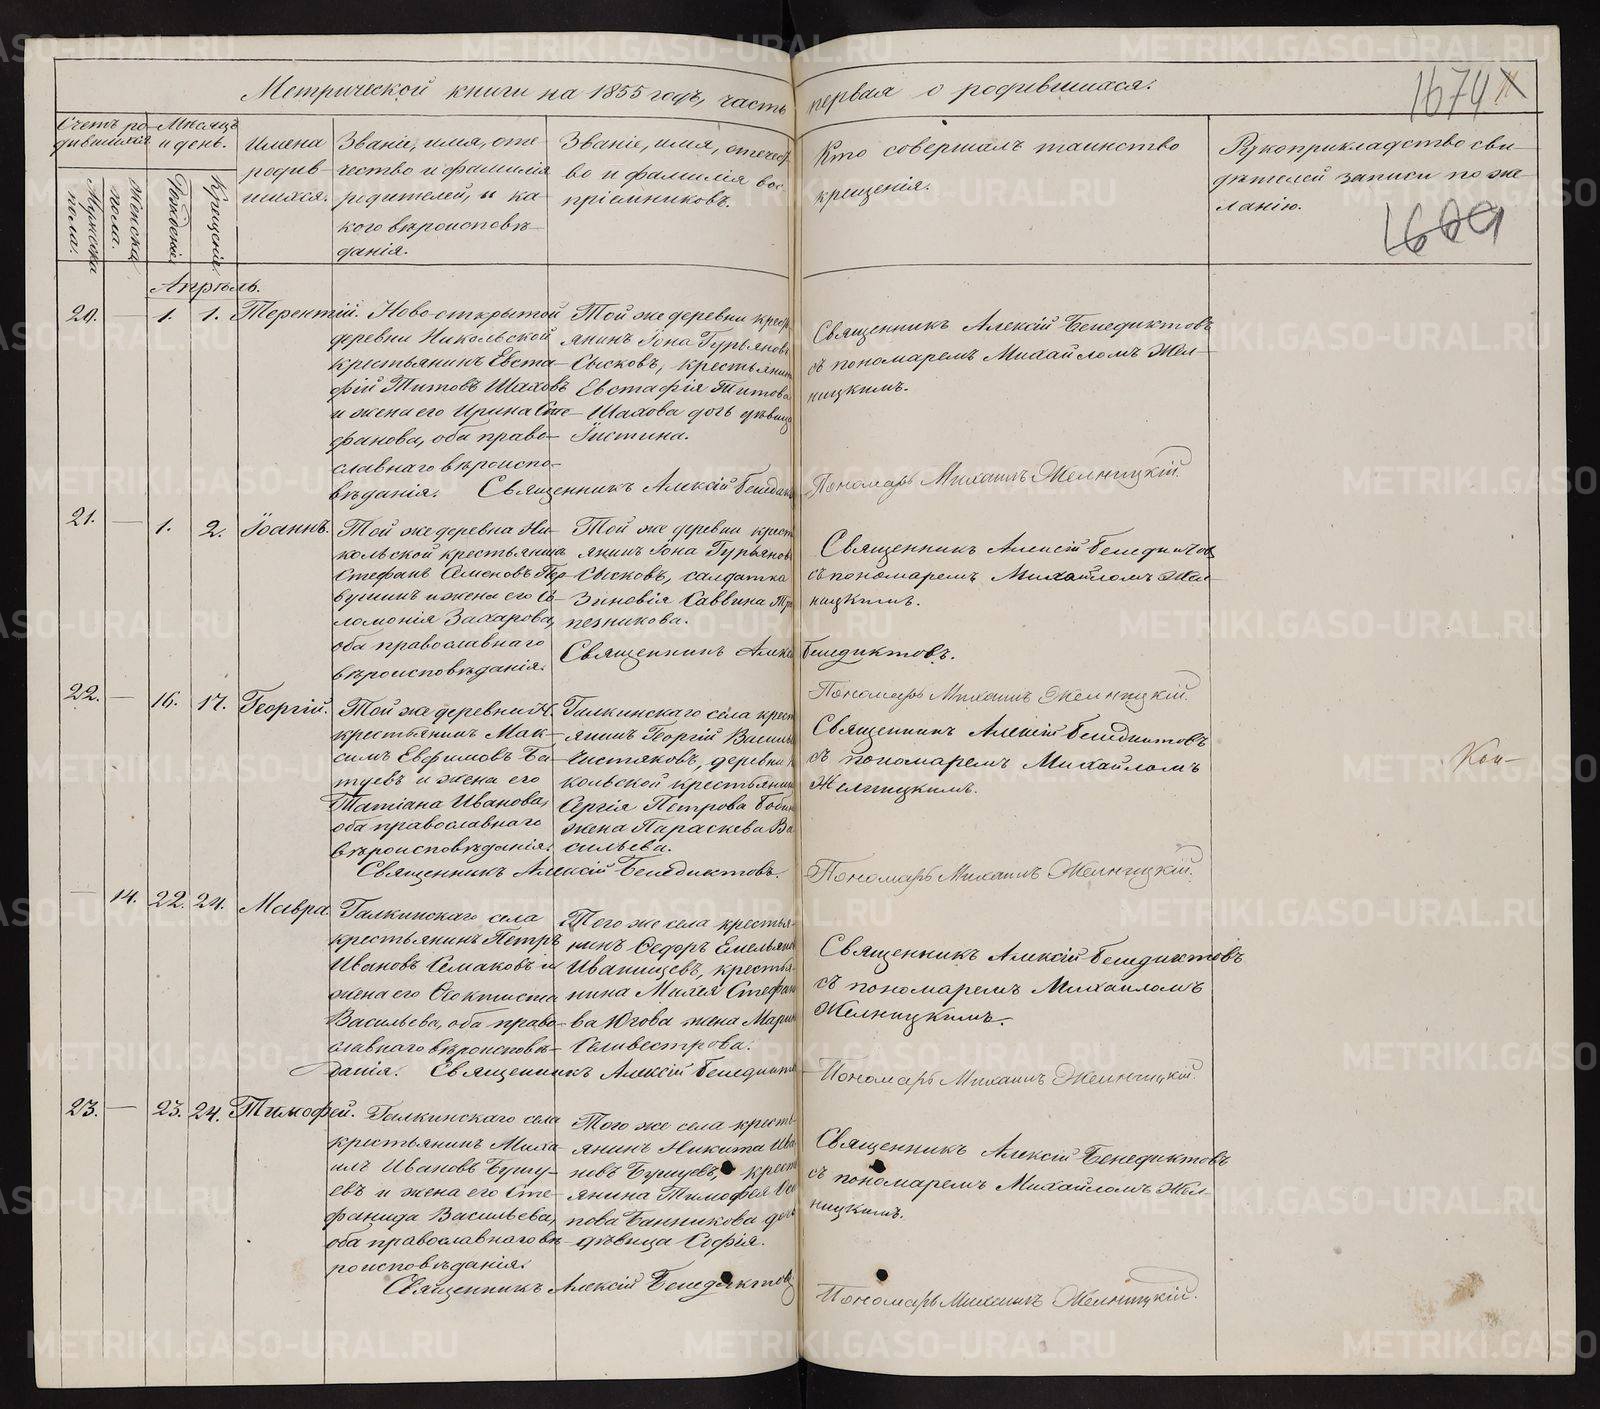 Метрической книги на 1855 годъ, часть первая о родившихся.
1674
1669
Счетъ ро-
дившихся
Мѣсяцъ
и день.
Мужска
пола.
Женска
пола.
Рожденія
Крещенія
Имена
родив-
шихся.
Званіе, имя, оте-
чество и фамилія
родителей, и ка-
кого вѣроисповѣ-
данія.
Званіе, имя, отечест
во и фамилія вос
пріемниковъ.
Кто совершалъ таинство
крещенія.
Рукоприкладство сви-
дѣтелей записи по же-
ланію.
Апрѣль.
20. — 1. 1. Терентій.
Ново-открытой
деревни Никольской
крестьянинъ Евста-
фій Титовъ Шаховъ
и жена его Ирина Сте-
фанова, оба право-
славнаго вѣроиспо-
вѣданія.
Той же деревни крест
янинъ Іона Гурьяновъ
Сысковъ, крестьянина
Евстафія Титова
Шахова дочь дѣвица
Іустина.
Священникъ Алексій Бенедик
Священникъ Алексій Бенедиктовъ
съ пономаремъ Михайломъ Жел-
ницкимъ.
Пономарь Михаилъ Желницкій.
21. — 1. 2. Іоаннъ.
Той же деревни Ни-
кольской крестьянинъ
Стефанъ Семеновъ Пер-
вушинъ и жена его Со-
ломонія Захарова,
оба православнаго
вѣроисповѣданія.
Той же деревни крест
янинъ Іона Гурьяновъ
Сысковъ, салдатка
Зиновія Саввина Тр
пезникова.
Священникъ Алексѣ Бенедиктовъ.
Священникъ Алексій Бенедиктовъ
съ пономаремъ Михайломъ Жел-
ницкимъ.
Пономарь Михаилъ Желницкій.
22. — 16. 17. Георгій.
Той же деревни Н.
крестьянинъ Мак-
симъ Евфимовъ Ба-
туевъ и жена его
Татіана Иванова,
оба православнаго
вѣроисповѣданія.
Галкинскаго села крест
янинъ Георгій Василь
Чистяковъ, деревни Н
кольской крестьянина
Сергія Петрова Бобин
жена Параскева Ва
сильева.
Священникъ Алексій Бенедиктовъ.
Священникъ Алексій Бенедиктовъ
съ пономаремъ Михайломъ
Желницкимъ.
Пономарь Михаилъ Желницкій.
— 14. 22. 24. Мавра.
Галкинскаго села
крестьянинъ Петръ
Ивановъ Семаковъ и
жена его Ѳеоктиста
Васильева, оба право-
славнаго вѣроисповѣ-
данія.
Того же села крестья-
нинъ Ѳедоръ Емельяно
Иванищевъ, крестья-
нина Михея Стефан
ва Югова жена Марин
Селивестрова.
Священникъ Алексій Бенедикто
Священникъ Алексій Бенедиктовъ
съ пономаремъ Михайломъ
Желницкимъ.
Пономарь Михаилъ Желницкій.
23. — 23. 24. Тимофей.
Галкинскаго села
крестьянинъ Миха-
илъ Ивановъ Бушу-
евъ и жена его Сте-
фанида Васильева,
оба православнаго вѣ-
роисповѣданія.
Того же села кресть-
янинъ Никита Ива
новъ Бушуевъ, крест
янина Тимофея Оси
пова Банникова дочь
дѣвица Софія.
Священникъ Алексій Бенедиктовъ
Священникъ Алексій Бенедиктовъ
съ пономаремъ Михайломъ Жел-
ницкимъ.
Пономарь Михаилъ Желницкій.
METRIKI.GASO-URAL.RU